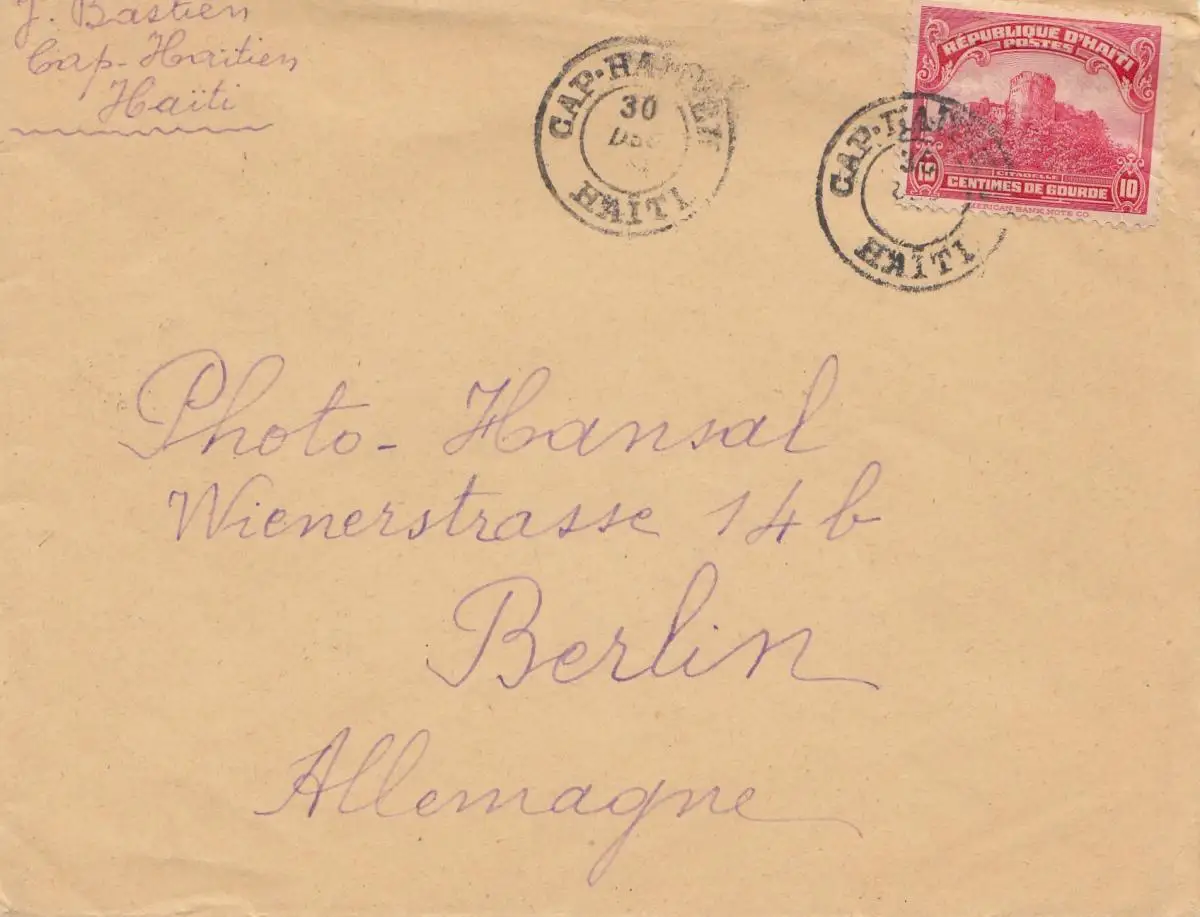 J. Bastien
Cap-Haïtien
Haïti
CAP-HAITIEN
30
DEC
HAÏTI
RÉPUBLIQUE D'HAITI
POSTES
CITADELLE
10 CENTIMES DE GOURDE 10
AMERICAN BANK NOTE CO.
CAP-HAI
30
HAÏTI
Photo-Hansal
Wienerstrasse 14b
Berlin
Allemagne